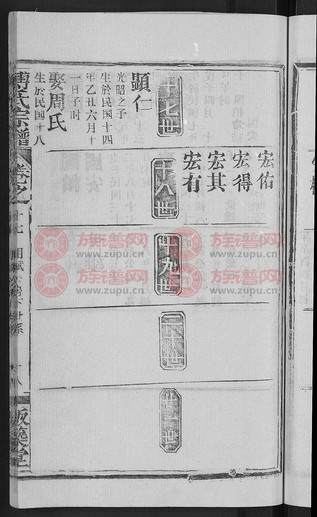 十七世
顯仁
光昭之子
生於民國十四
年乙丑六月十
一日子時
娶周氏
生於民國十八
十八世
宏佑
宏得
宏其
宏有
十九世
二十世
廿一世
氏宗譜
卷之
版築堂
族谱网
www.zupu.cn
族谱网
www.zupu.cn
族谱网
www.zupu.cn